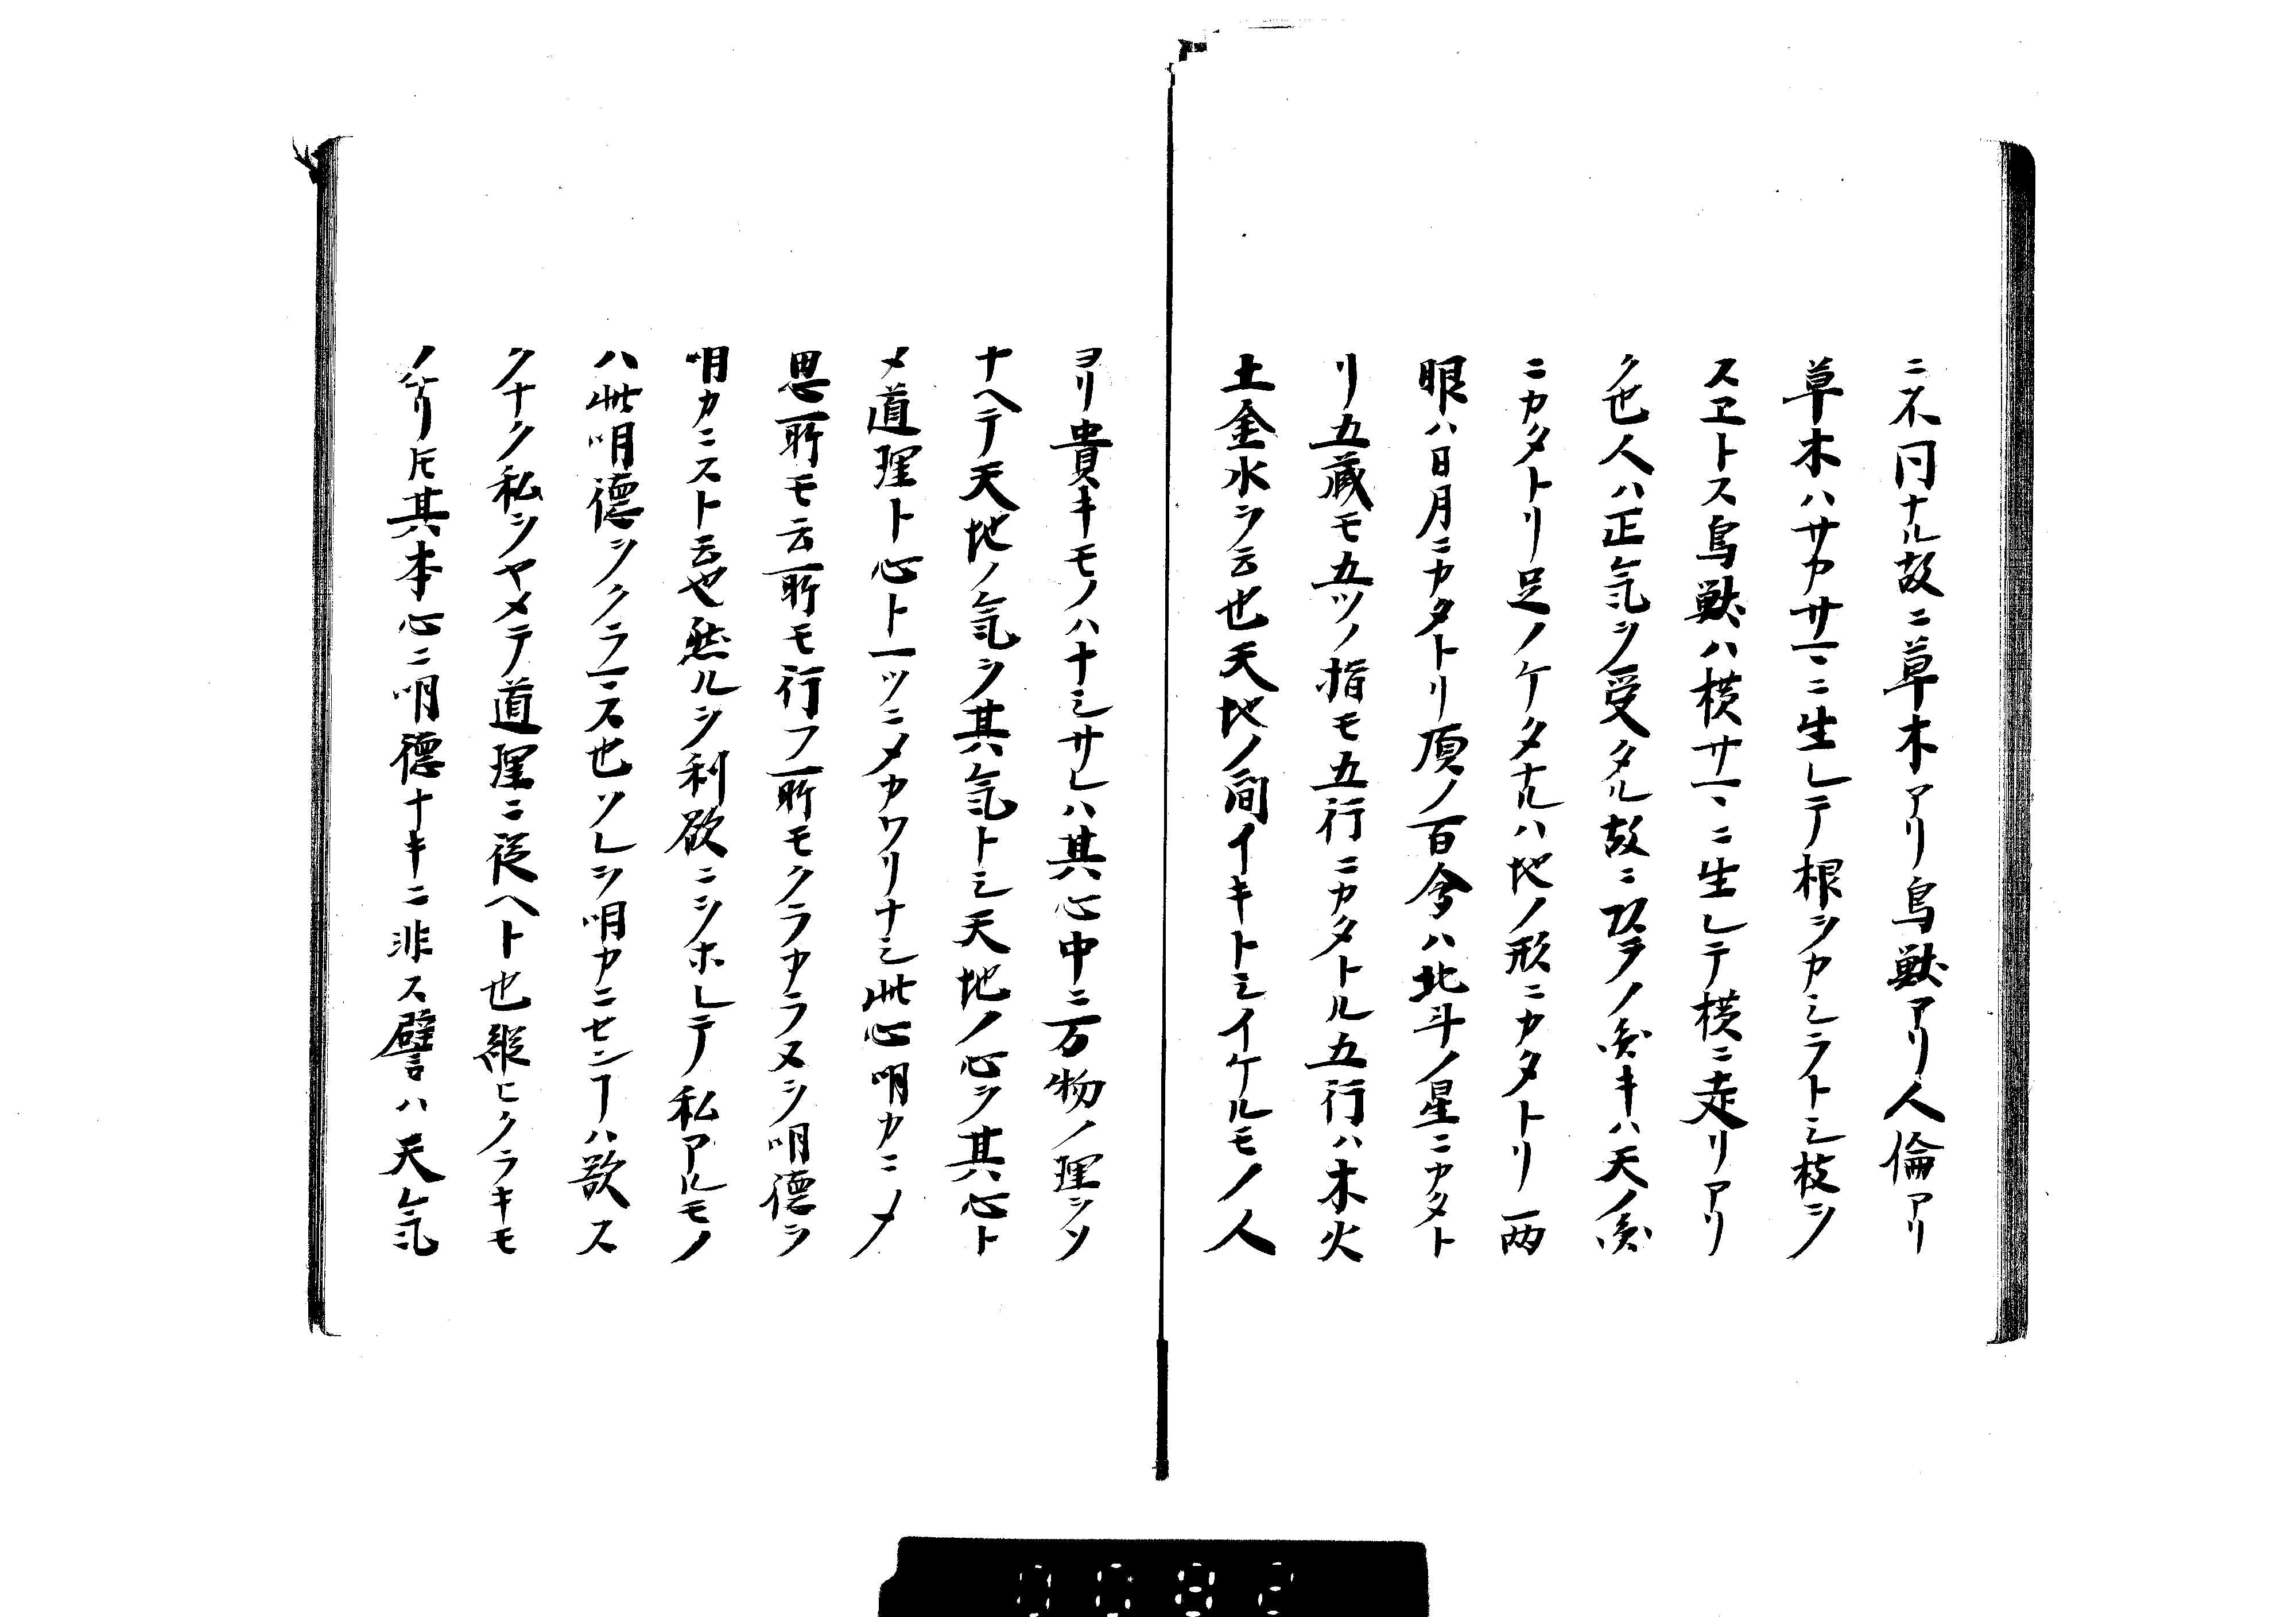 ニ不同ナル故ニ草木アリ鳥獣アリ人倫アリ
草木ハサカサマニ生レテ根ヲカシラトシ枝ヲ
スヱトス鳥獣ハ横サマニ生レテ横ニ走リアリ
ク也人ハ正気ヲ受タル故ニ頭ノ円キハ天ノ円
ニカタトリ足ノケタナルハ地ノ形ニカタトリ両
眼ハ日月ニカタトリ頂ノ百会ハ北斗ノ星ニカタト
リ五蔵モ五ツノ指モ五行ニカタトル五行ハ木火
土金水ヲ云也天地ノ間イキトシイケルモノ人
ヨリ貴キモノハナシサレハ其心中ニ万物ノ理ヲソ
ナヘテ天地ノ気ヲ其気トシ天地ノ心ヲ其心ト
メ道理ト心ト一ツニメカワリナシ此心明カニメ
思所モ云所モ行フ所モクラカラヌヲ明徳ヲ
明カニスト云也然ルヲ利欲ニヲホレテ私アルモノ
ハ此明徳ヲクラマス也ソレヲ明カニセンコハ欲ス
クナク私ヲヤメテ道理ニ従ヘト也縦ヒクラキモ
ノナリ𪜈其本心ニ明徳ナキニ非ス譬ハ天気